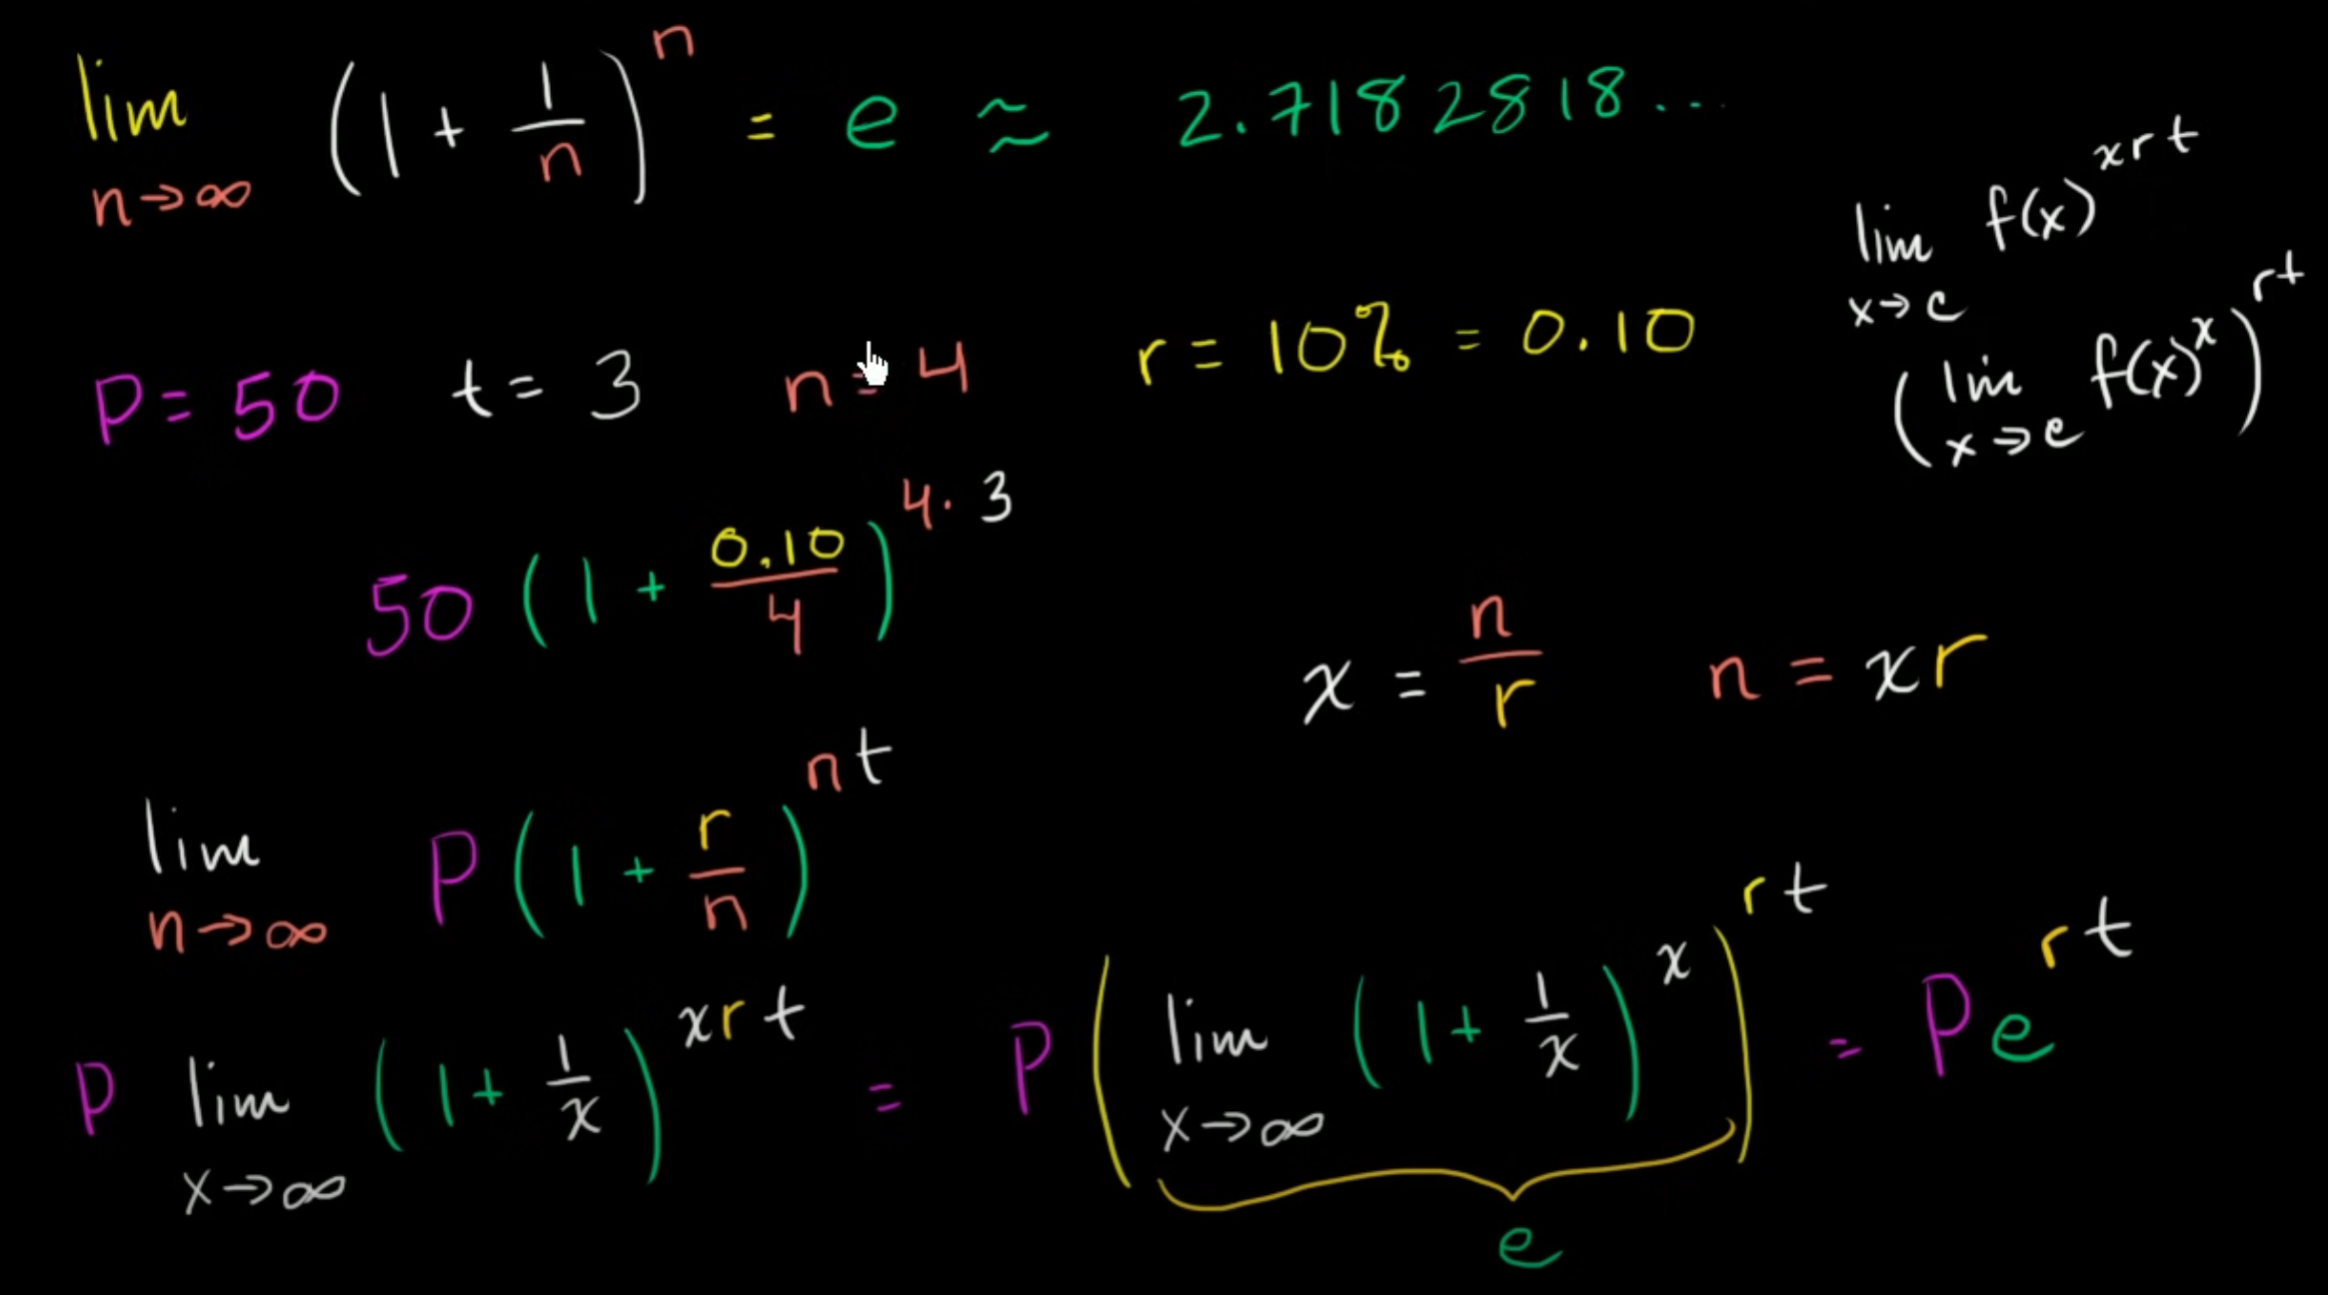 lim n→∞ (1 + 1/n)^n = e ≈ 2.7182818...
lim x→c f(x)^xrt
(lim x→c f(x)^x)^rt
P = 50 t = 3 n = 4 r = 10% = 0.10
50 (1 + 0.10/4)^4·3
x = n/r n = xr
lim n→∞ P(1 + r/n)^nt
P lim x→∞ (1 + 1/x)^xrt = P(lim x→∞ (1 + 1/x)^x)^rt = Pe^rt
e